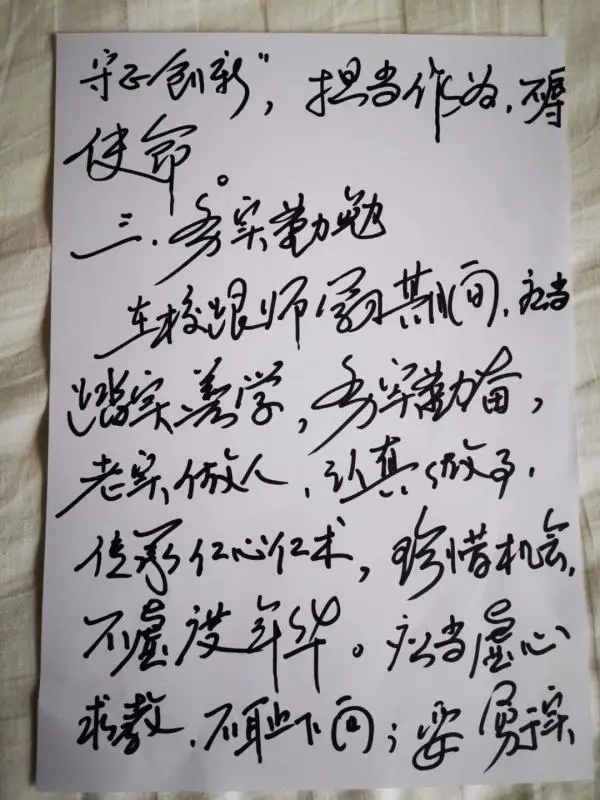 守正创新”，担当作为，不辱
使命。
三.务实勤勉
在校跟师学习其间，应当
踏实善学，务实勤奋，
老实做人，认真做事，
传承仁心仁术，珍惜机会，
不虚度年华。应当虚心
求教，不耻下问；要勇于实